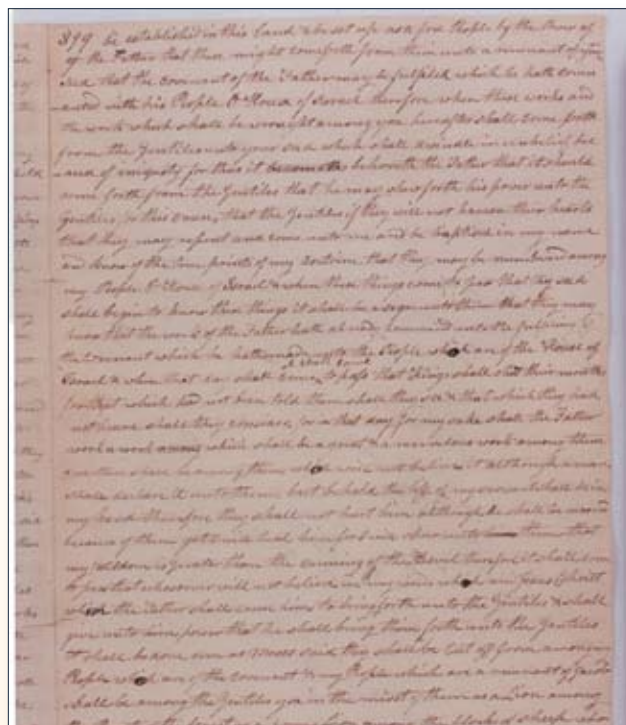 399 be established in this Land & be set up as a free People by the Power of
of the Father that these might come forth from them unto a remnant of your
seed that the covenant of the Father may be fulfilled which he hath coven
anted with his People O House of Israel therefore when these works and
the work which shall be wrought among you hereafter shall come forth
from the Gentiles unto your seed which shall dwindle in unbelief bec
ause of iniquity for thus it behooveth the Father that it should
come forth from the Gentiles that he may shew forth his power unto the
Gentiles for this cause that the Gentiles if they will not harden their hearts
that they may repent and come unto me and be baptised in my name
and know of the true points of my doctrine that they may be numbered among
my People O House of Israel & when these things come to pass that thy seed
shall begin to know these things it shall be a sign unto them that they may
know that the work of the Father hath already commenced unto the fulfilling of
the covenant which he hath made unto the People which are of the House of
Israel & when that day shall come it shall come to pass that Kings shall shut their mouths
for that which had not been told them shall they see & that which they had
not heard shall they consider for in that day for my sake shall the Father
work a work which shall be a great & a marvelous work among them
& there shall be among them which will not believe it although a man
shall declare it unto them but behold the life of my servant shall be in
my hand therefore they shall not hurt him although he shall be marred
because of them yet I will heal him for I will shew unto them that
my wisdom is greater than the cunning of the Devil therefore it shall come
to pass that whosoever will not believe in my words which am Jesus Christ
which the Father shall cause him to bring forth unto the Gentiles & shall
give unto him power that he shall bring them forth unto the Gentiles
it shall be done even as Moses said they shall be cut off from among my
People which are of the covenant & my People which are a remnant of Jacob
shall be among the Gentiles yea in the midst of them as a Lion among